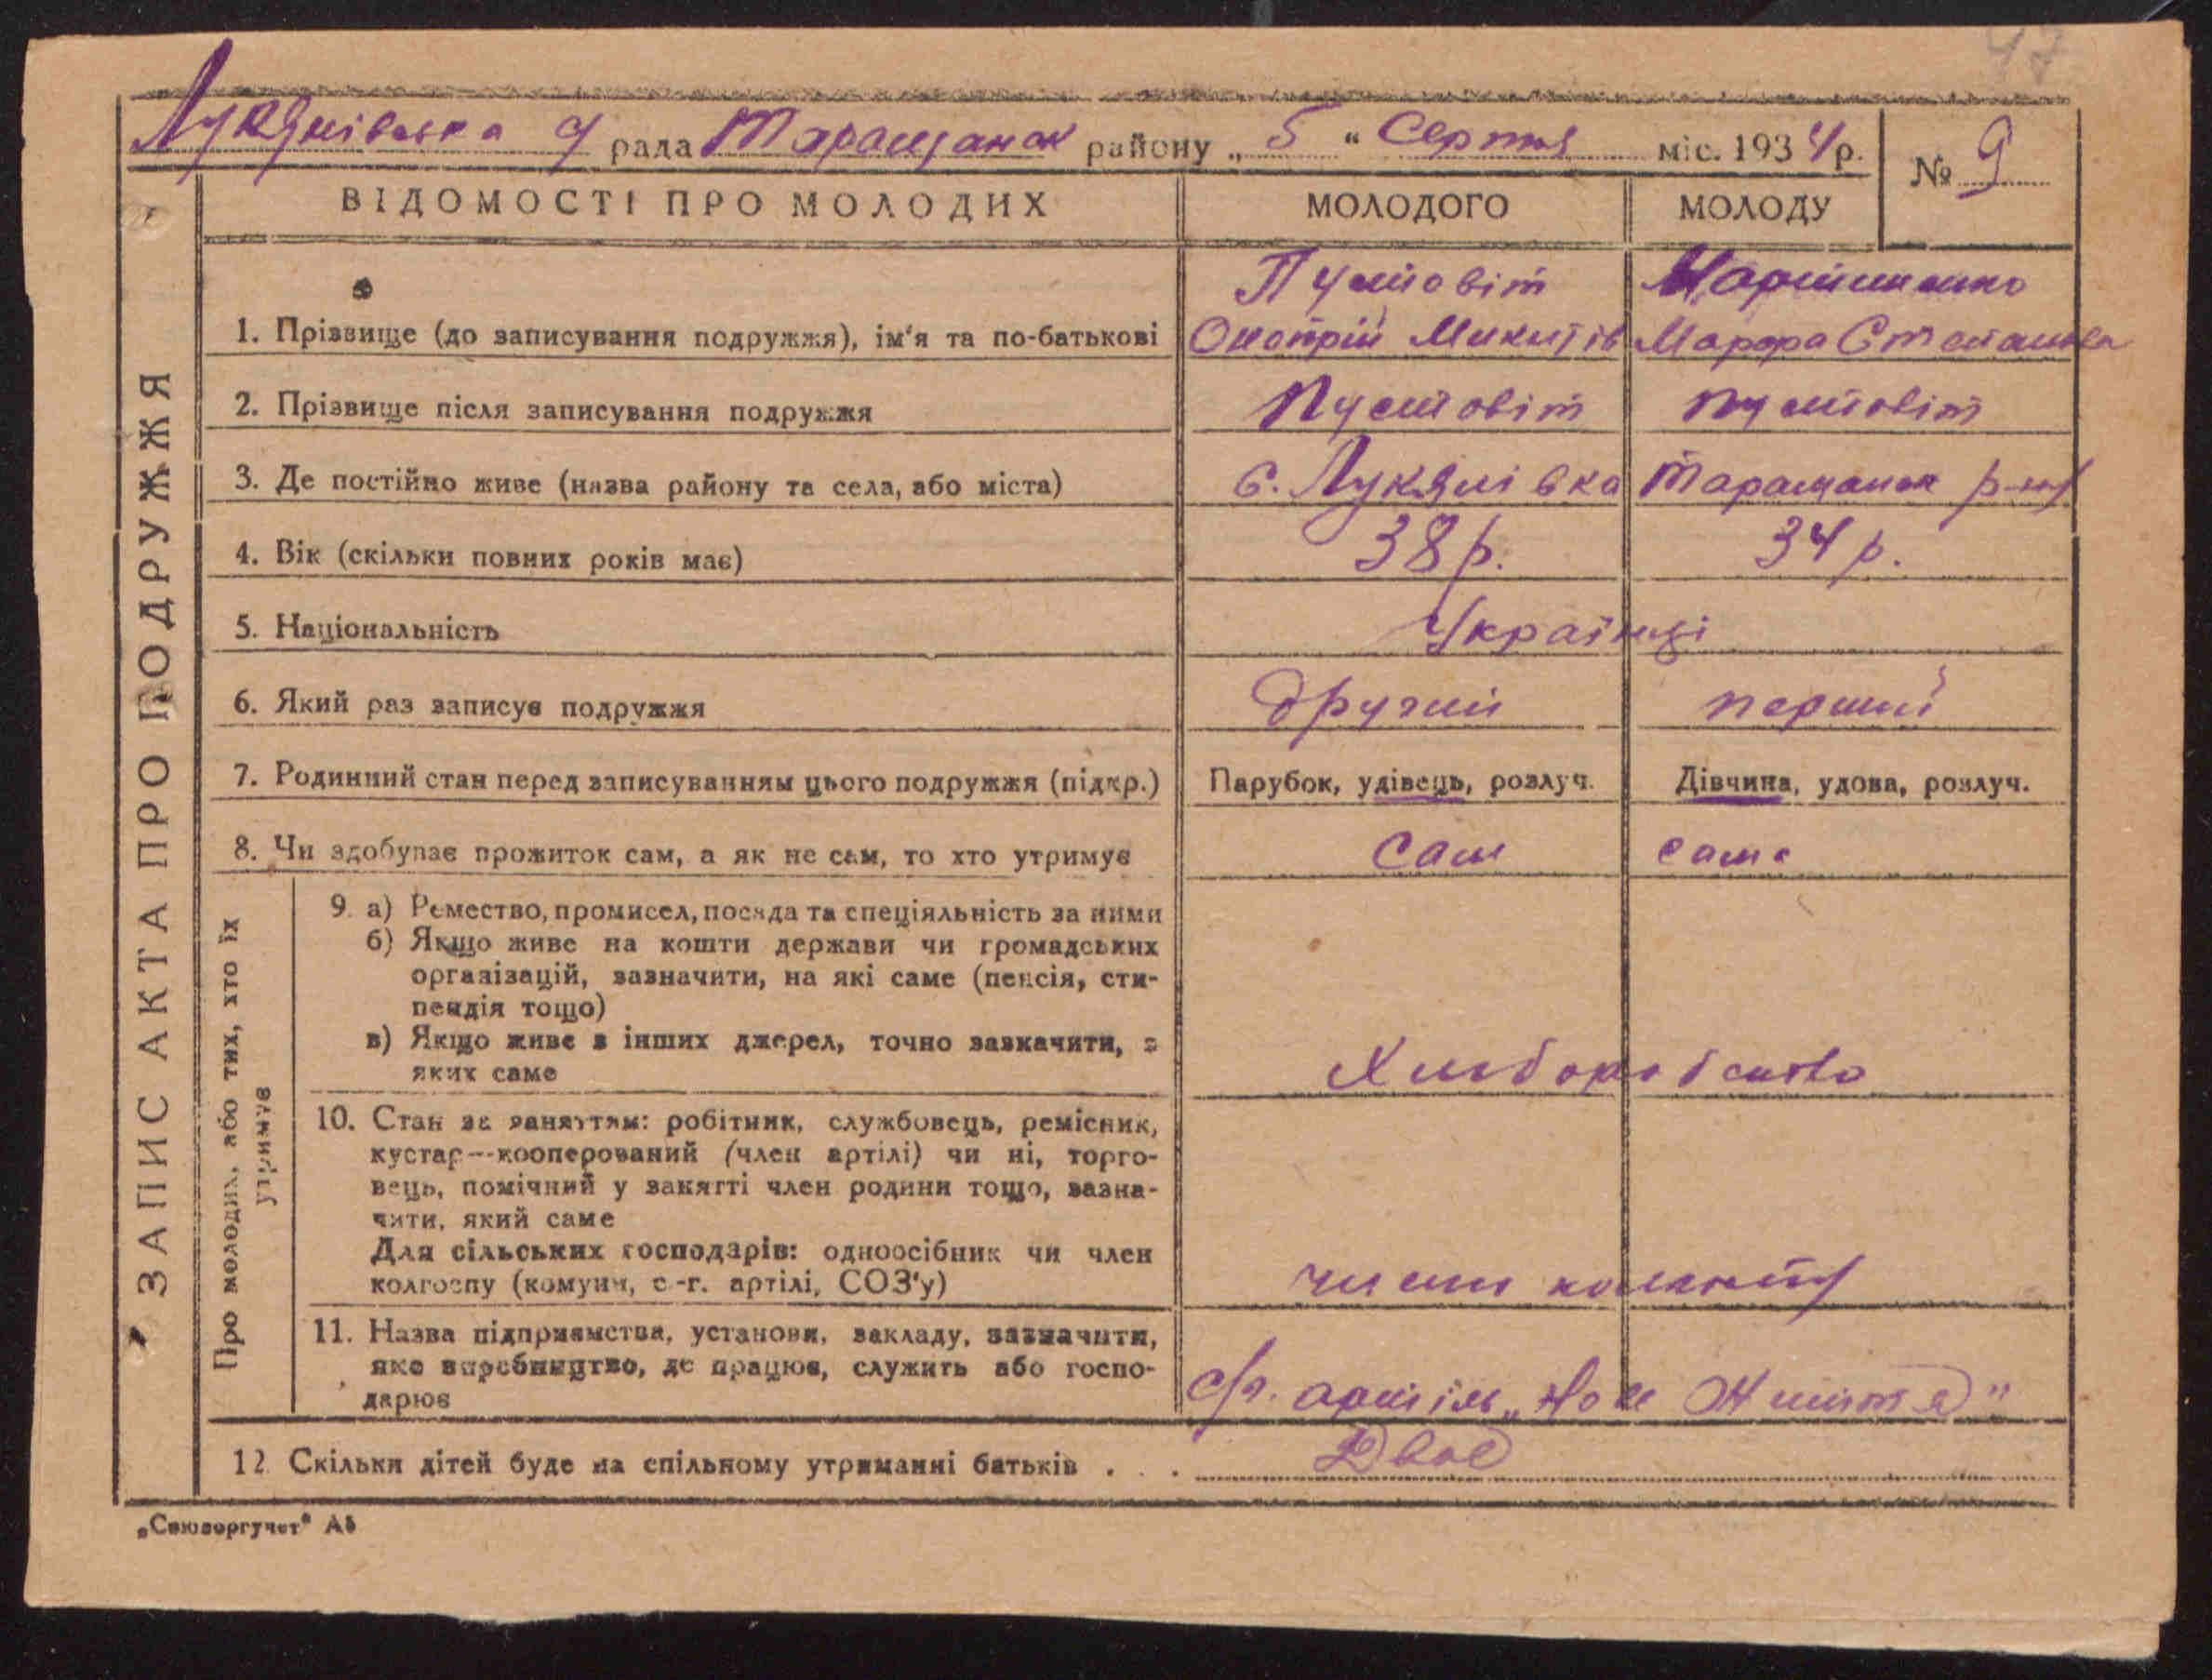 47
Лукянівська с/ рада Таращанск району „ 5 “ Серпня міс. 1934 р.
№ 9
ЗАПИС АКТА ПРО ПОДРУЖЖЯ
ВІДОМОСТІ ПРО МОЛОДИХ МОЛОДОГО МОЛОДУ
Пустовіт
1. Прізвище (до записування подружжя), ім'я та по-батькові Онопрій Микитів Марфа Степанівна
2. Прізвище після записування подружжя Пустовіт Пустовіт
3. Де постійно живе (назва району та села, або міста) с. Лукянівка Таращанск р-ну
4. Вік (скільки повних років має) 38 р. 34 р.
5. Національність Українці
6. Який раз записує подружжя другий перший
7. Родинний стан перед записуванням цього подружжя (підкр.) Парубок, удівець, розлуч. Дівчина, удова, розлуч.
8. Чи здобуває прожиток сам, а як не сам, то хто утримує сам сама
Про молодих, або тих, хто їх утримує
9. а) Ремество, промисел, посада та спеціяльність за ними
б) Якщо живе на кошти держави чи громадських
організацій, зазначити, на які саме (пенсія, сти-
пендія тощо)
в) Якщо живе з інших джерел, точно зазначити, з
яких саме Хліборобство
10. Стан за заняттям: робітник, службовець, ремісник,
кустар—кооперований (член артілі) чи ні, торго-
вець, помічний у занятті член родини тощо, зазна-
чити, який саме
Для сільських господарів: одноосібник чи член
колгоспу (комуни, с.-г. артілі, СОЗ'у) член
11. Назва підприємства, установи, закладу, зазначити,
яке виробництво, де працює, служить або госпо-
дарює с/г. артіль „Нове Життя"
12. Скільки дітей буде на спільному утриманні батьків . . . Двоє
„Союзоргучет" А5